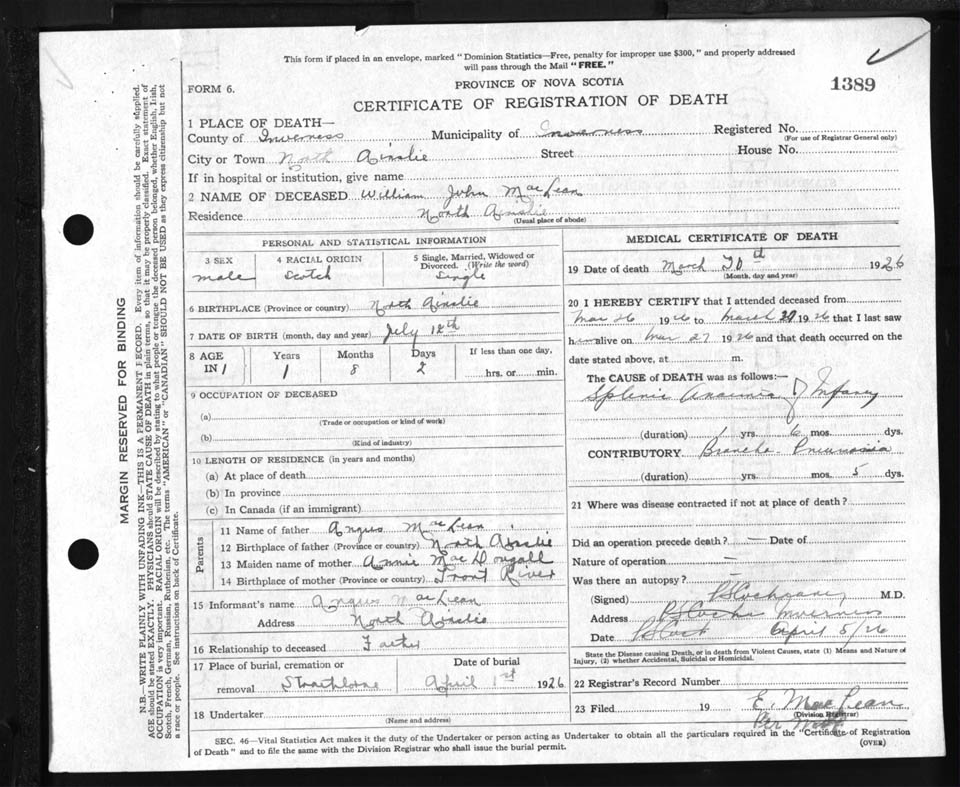 This form if placed in an envelope, marked "Dominion Statistics—Free, penalty for improper use $300," and properly addressed
will pass through the Mail "FREE."
FORM 6.
PROVINCE OF NOVA SCOTIA
1389
CERTIFICATE OF REGISTRATION OF DEATH
1 PLACE OF DEATH—
County of Inverness Municipality of Inverness Registered No.
(For use of Registrar General only)
City or Town North Ainslie Street House No.
If in hospital or institution, give name
2 NAME OF DECEASED William John MacLean
Residence North Ainslie
(Usual place of abode)
PERSONAL AND STATISTICAL INFORMATION
3 SEX 4 RACIAL ORIGIN 5 Single, Married, Widowed or
Divorced. (Write the word)
male Scotch Single
6 BIRTHPLACE (Province or country) North Ainslie
7 DATE OF BIRTH (month, day and year) July 18th
8 AGE Years Months Days If less than one day,
IN 1 8 2 hrs. or min.
9 OCCUPATION OF DECEASED
(a)
(Trade or occupation or kind of work)
(b)
(Kind of industry)
10 LENGTH OF RESIDENCE (in years and months)
(a) At place of death
(b) In province
(c) In Canada (if an immigrant)
Parents
11 Name of father Angus MacLean
12 Birthplace of father (Province or country) North Ainslie
13 Maiden name of mother Annie MacDougall
14 Birthplace of mother (Province or country) Trout River
15 Informant's name Angus MacLean
Address North Ainslie
16 Relationship to deceased Father
17 Place of burial, cremation or Date of burial
removal Strathlorne April 1st 1926
18 Undertaker
(Name and address)
MEDICAL CERTIFICATE OF DEATH
19 Date of death March 30th 1926
(Month, day and year)
20 I HEREBY CERTIFY that I attended deceased from
Mar 26 1926 to March 1926 that I last saw
him alive on Mar 27 1926 and that death occurred on the
date stated above, at m.
The CAUSE of DEATH was as follows:—
Splenic Anaemia of Infancy
(duration) 1 yrs. 6 mos. dys.
CONTRIBUTORY Broncho Pneumonia
(duration) yrs. mos. 5 dys.
21 Where was disease contracted if not at place of death?
Did an operation precede death? — Date of
Nature of operation —
Was there an autopsy? —
(Signed) Cochrane M.D.
Address Inverness
Date April 5/26
State the Disease causing Death, or in death from Violent Causes, state (1) Means and Nature of
Injury, (2) whether Accidental, Suicidal or Homicidal.
22 Registrar's Record Number
23 Filed 19 E. MacLean
(Division Registrar)
Per
SEC. 46—Vital Statistics Act makes it the duty of the Undertaker or person acting as Undertaker to obtain all the particulars required in the "Certificate of Registration
of Death" and to file the same with the Division Registrar who shall issue the burial permit.
(OVER)
MARGIN RESERVED FOR BINDING
N.B.—WRITE PLAINLY WITH UNFADING INK—THIS IS A PERMANENT RECORD. Every item of information should be carefully supplied.
AGE should be stated EXACTLY. PHYSICIANS should STATE CAUSE OF DEATH in plain terms, so that it may be properly classified. Exact statement of
OCCUPATION is very important. RACIAL ORIGIN will be described by stating to what people or tongue the deceased person belonged, whether English, Irish,
Scotch, French, German, Russian, Ruthenian, etc. The terms "AMERICAN" or "CANADIAN" SHOULD NOT BE USED as they express citizenship but not
a race or people. See instructions on back of Certificate.